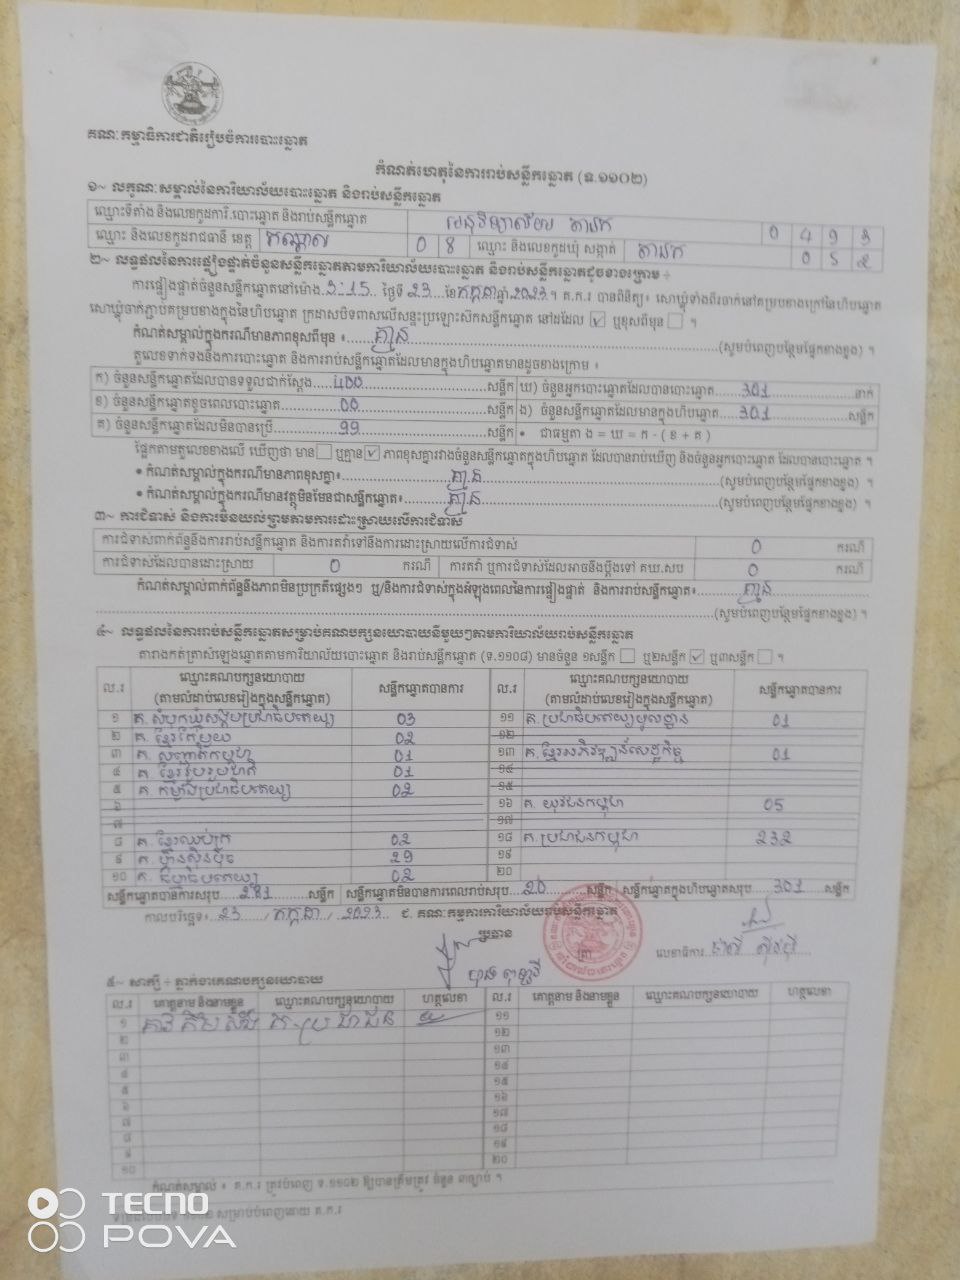 គណៈកម្មាធិការជាតិរៀបចំការបោះឆ្នោត
កំណត់ហេតុនៃការរាប់សន្លឹកឆ្នោត (ទ.១១០២)
១~ លក្ខណៈសម្គាល់នៃការិយាល័យបោះឆ្នោត និងរាប់សន្លឹកឆ្នោត
ឈ្មោះទីតាំង និងលេខកូដការិ.បោះឆ្នោត និងរាប់សន្លឹកឆ្នោត អនុវិទ្យាល័យ តាឯក 0 4 9 3
ឈ្មោះ និងលេខកូដរាជធានី ខេត្ត កណ្តាល 0 8 ឈ្មោះ និងលេខកូដឃុំ សង្កាត់ តាឯក
២~ លទ្ធផលនៃការផ្ទៀងផ្ទាត់ចំនួនសន្លឹកឆ្នោតតាមការិយាល័យបោះឆ្នោត និងរាប់សន្លឹកឆ្នោតដូចខាងក្រោម ÷
ការផ្ទៀងផ្ទាត់ចំនួនសន្លឹកឆ្នោតនៅម៉ោង 3:15 ថ្ងៃទី 23 ខែ កក្កដា ឆ្នាំ 2023 ។ គ.ក.រ បានពិនិត្យ៖ សោឃ្លុំទាំងពីរចាក់នៅគម្របខាងក្រៅនៃហិបឆ្នោត
សោឃ្លុំចាក់ភ្ជាប់គម្របខាងក្នុងនៃហិបឆ្នោត ក្រដាសបិទពាសលើសន្ទះប្រឡោះសឹកសន្លឹកឆ្នោត នៅដដែល ☑ ឬខុសពីមុន ☐ ។
កំណត់សម្គាល់ក្នុងករណីមានភាពខុសពីមុន ៖ គ្មាន (សូមបំពេញបន្ថែមផ្នែកខាងខ្នង) ។
តួលេខទាក់ទងនឹងការបោះឆ្នោត និងការរាប់សន្លឹកឆ្នោតដែលមានក្នុងហិបឆ្នោតមានដូចខាងក្រោម ៖
ក) ចំនួនសន្លឹកឆ្នោតដែលបានទទួលជាក់ស្តែង 400 សន្លឹក ឃ) ចំនួនអ្នកបោះឆ្នោតដែលបានបោះឆ្នោត 301 នាក់
ខ) ចំនួនសន្លឹកឆ្នោតខូចពេលបោះឆ្នោត 00 សន្លឹក ង) ចំនួនសន្លឹកឆ្នោតដែលមានក្នុងហិបឆ្នោត 301 សន្លឹក
គ) ចំនួនសន្លឹកឆ្នោតដែលមិនបានប្រើ 99 សន្លឹក • ជាធម្មតា ង = ឃ = ក - ( ខ + គ )
ផ្អែកតាមតួលេខខាងលើ ឃើញថា មាន ☐ ឬគ្មាន ☑ ភាពខុសគ្នារវាងចំនួនសន្លឹកឆ្នោតក្នុងហិបឆ្នោត ដែលបានរាប់ឃើញ និងចំនួនអ្នកបោះឆ្នោត ដែលបានបោះឆ្នោត ។
• កំណត់សម្គាល់ក្នុងករណីមានភាពខុសគ្នា៖ គ្មាន (សូមបំពេញបន្ថែមផ្នែកខាងខ្នង) ។
• កំណត់សម្គាល់ក្នុងករណីមានវត្ថុមិនមែនជាសន្លឹកឆ្នោត៖ គ្មាន (សូមបំពេញបន្ថែមផ្នែកខាងខ្នង) ។
៣~ ការជំទាស់ និងការមិនយល់ព្រមតាមការដោះស្រាយលើការជំទាស់
ការជំទាស់ពាក់ព័ន្ធនឹងការរាប់សន្លឹកឆ្នោត និងការតវ៉ាទៅនឹងការដោះស្រាយលើការជំទាស់ 0 ករណី
ការជំទាស់ដែលបានដោះស្រាយ 0 ករណី ការតវ៉ា ឬការជំទាស់ដែលអាចនឹងប្តឹងទៅ គឃ.សប 0 ករណី
កំណត់សម្គាល់ពាក់ព័ន្ធនឹងភាពមិនប្រក្រតីផ្សេងៗ ឬ/និងការជំទាស់ក្នុងអំឡុងពេលនៃការផ្ទៀងផ្ទាត់ និងការរាប់សន្លឹកឆ្នោត៖ គ្មាន
(សូមបំពេញបន្ថែមផ្នែកខាងខ្នង) ។
៤~ លទ្ធផលនៃការរាប់សន្លឹកឆ្នោតសម្រាប់គណបក្សនយោបាយនីមួយៗតាមការិយាល័យរាប់សន្លឹកឆ្នោត
តារាងកត់ត្រាសំឡេងឆ្នោតតាមការិយាល័យបោះឆ្នោត និងរាប់សន្លឹកឆ្នោត (ទ.១១០៨) មានចំនួន ១សន្លឹក ☐ ឬ២សន្លឹក ☑ ឬ៣សន្លឹក ☐ ។
ល.រ ឈ្មោះគណបក្សនយោបាយ សន្លឹកឆ្នោតបានការ ល.រ ឈ្មោះគណបក្សនយោបាយ សន្លឹកឆ្នោតបានការ
(តាមលំដាប់លេខរៀងក្នុងសន្លឹកឆ្នោត) (តាមលំដាប់លេខរៀងក្នុងសន្លឹកឆ្នោត)
១ គ.សំបុកឃ្មុំសង្គមប្រជាធិបតេយ្យ 03 ១១ គ.ប្រជាធិបតេយ្យមូលដ្ឋាន 01
២ គ.ខ្មែរតែមួយ 02 ១២
៣ គ.សញ្ជាតិកម្ពុជា 01 ១៣ គ.ខ្មែរអភិវឌ្ឍន៍សេដ្ឋកិច្ច 01
៤ គ.ខ្មែររួបរួមជាតិ 01 ១៤
៥ គ.កម្លាំងប្រជាធិបតេយ្យ 02 ១៥
៦ ១៦ គ.យុវជនកម្ពុជា 05
៧ ១៧
៨ គ.ខ្មែរឈប់ក្រ 02 ១៨ គ.ប្រជាជនកម្ពុជា 232
៩ គ.ហ៊្វុនស៊ិនប៉ិច 29 ១៩
១០ គ.ជំហានធិបតេយ្យ 02 ២០
សន្លឹកឆ្នោតបានការសរុប 281 សន្លឹក សន្លឹកឆ្នោតមិនបានការពេលរាប់សរុប 20 សន្លឹក សន្លឹកឆ្នោតក្នុងហិបឆ្នោតសរុប 301 សន្លឹក
កាលបរិច្ឆេទ៖ 23 / កក្កដា / 2023 ជ. គណៈកម្មការការិយាល័យរាប់សន្លឹកឆ្នោត
ប្រធាន ត្រា លេខាធិការ
៥~ សាក្សី ÷ ភ្នាក់ងារគណបក្សនយោបាយ
ល.រ គោត្តនាម និងនាមខ្លួន ឈ្មោះគណបក្សនយោបាយ ហត្ថលេខា ល.រ គោត្តនាម និងនាមខ្លួន ឈ្មោះគណបក្សនយោបាយ ហត្ថលេខា
១ គ.ប្រជាជន ១១
២ ១២
៣ ១៣
៤ ១៤
៥ ១៥
៦ ១៦
៧ ១៧
៨ ១៨
៩ ១៩
១០ ២០
កំណត់សម្គាល់ ៖ គ.ក.រ ត្រូវបំពេញ ទ.១១០២ ឱ្យបានត្រឹមត្រូវ ចំនួន ៣ច្បាប់ ។
សម្រាប់បំពេញដោយ គ.ក.រ
TECNO
POVA